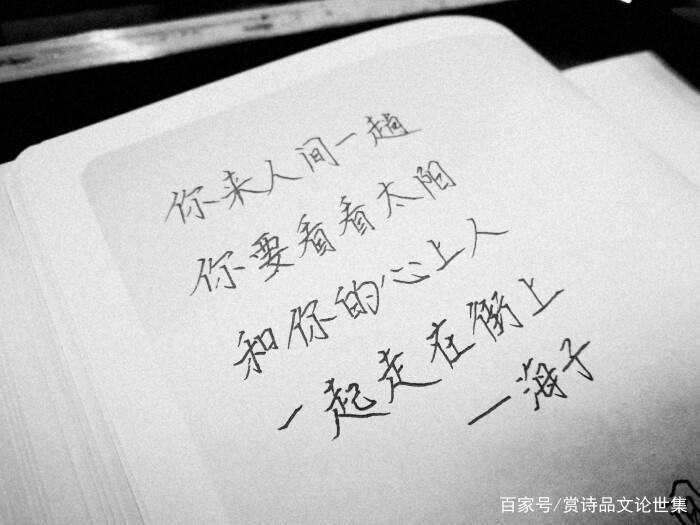 你来人间一趟
你要看看太阳
和你的心上人
一起走在街上
一海子
百家号/赏诗品文论世集